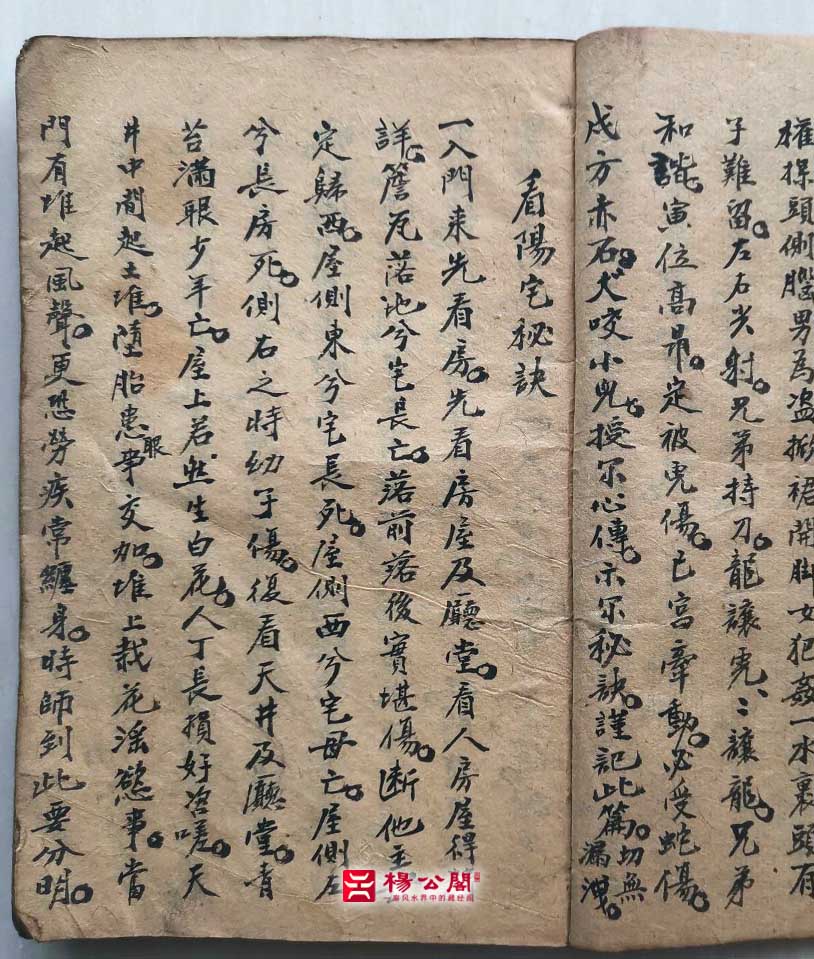 權操頭側腦男為盗掀裙開脚女犯姦一水裹頭有
子難留左右尖射兄弟持刀龍讓虎〻讓龍兄弟
和諧寅位高昂定被虎傷巳宫牽動必受蛇傷
戌方赤石犬咬小兒授尔心傳示尔秘訣謹記此篇切無漏洩
看陽宅秘訣
一入門来先看房先看房屋及廳堂看人房屋得
詳簷瓦落地兮宅長亡落前落後實堪傷断他
定歸西屋側東兮宅長死屋側西兮宅母亡屋側左
兮長房死側右之時幼子傷復看天井及廳堂青
苔滿眼少年亡屋上若然生白花人丁長損好咨嗟天
井中間起土堆墮胎患眼事交加堆上栽花淫慾事當
門有堆起風聲更恐勞疾常纏身時師到此要分明
楊公閣
一座风水界中的藏经阁